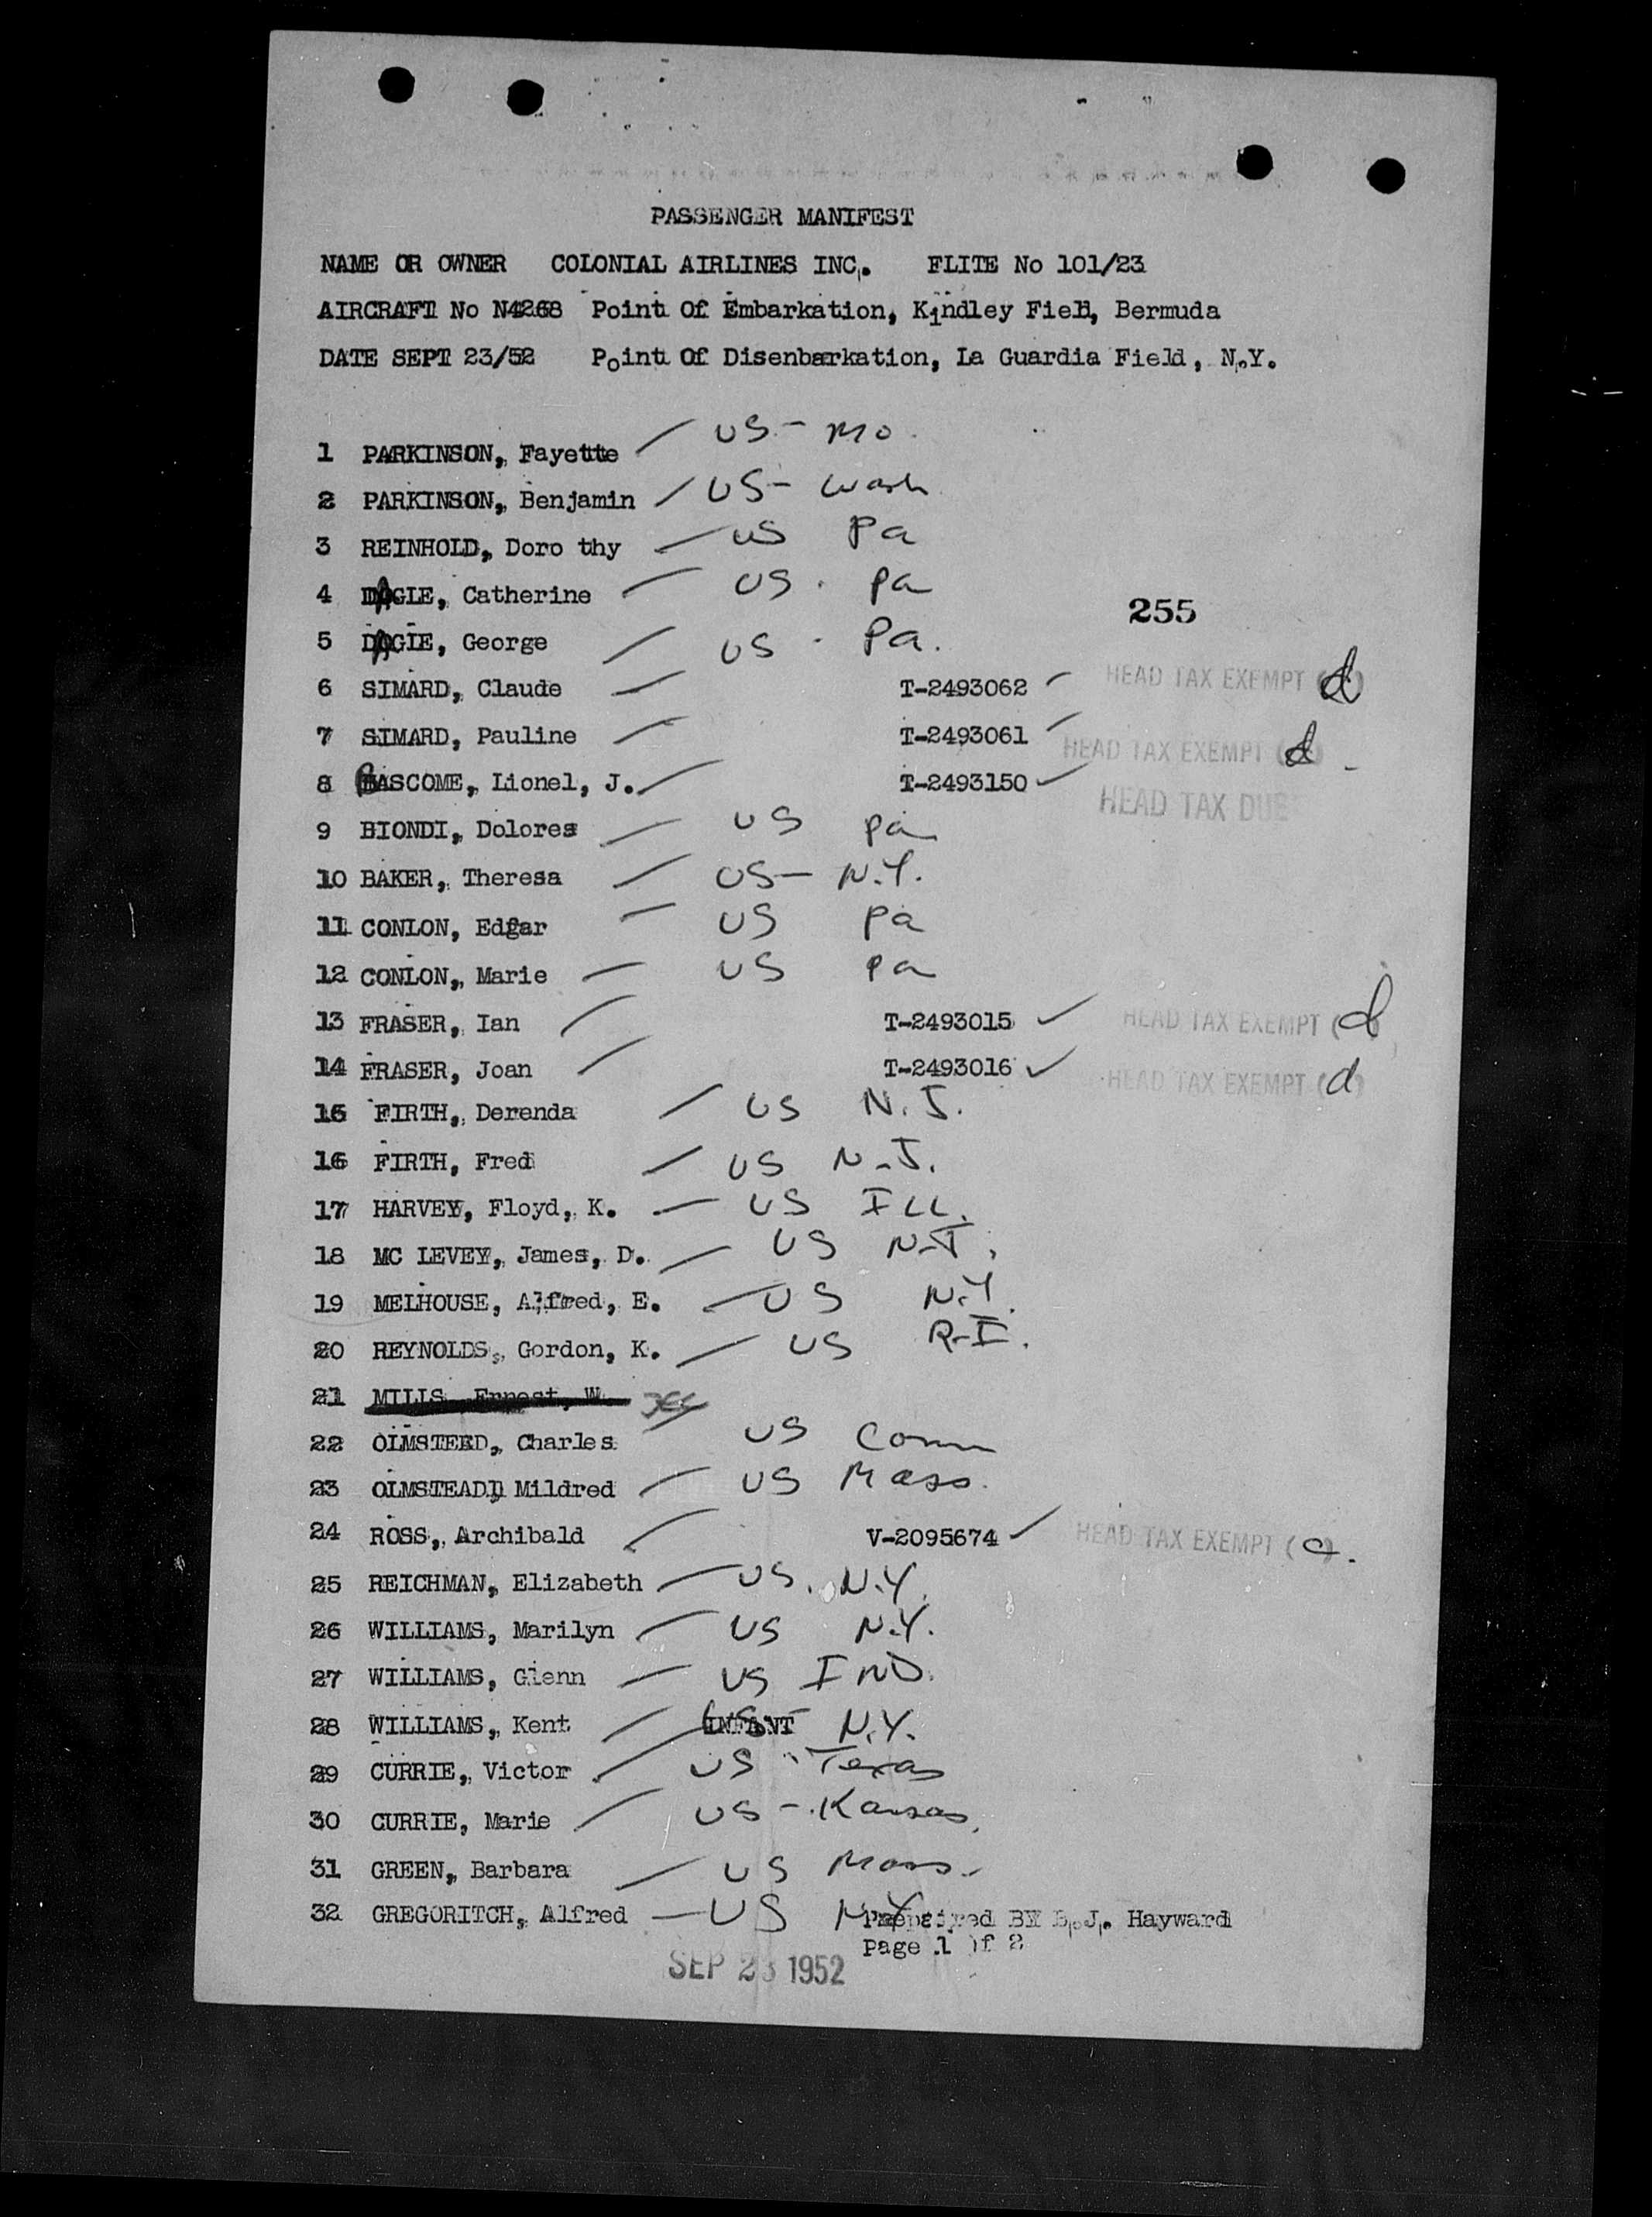 PASSENGER MANIFEST
NAME OR OWNER COLONIAL AIRLINES INC. FLITE No 101/23
AIRCRAFT No N4268 Point Of Embarkation, Kindley Field, Bermuda
DATE SEPT 23/52 Point Of Disenbarkation, La Guardia Field, N.Y.
1 PARKINSON, Fayette US - Mo.
2 PARKINSON, Benjamin US - Wash
3 REINHOLD, Doro thy US Pa
4 DAGLE, Catherine US. Pa
255
5 DAGLE, George US. Pa.
6 SIMARD, Claude T-2493062 HEAD TAX EXEMPT (d)
7 SIMARD, Pauline T-2493061 HEAD TAX EXEMPT (d)
8 BASCOME, Lionel, J. T-2493150 HEAD TAX DUE
9 BIONDI, Dolores US Pa
10 BAKER, Theresa US - N.Y.
11 CONLON, Edgar US Pa
12 CONLON, Marie US Pa
13 FRASER, Ian T-2493015 HEAD TAX EXEMPT (d)
14 FRASER, Joan T-2493016 HEAD TAX EXEMPT (d)
15 FIRTH, Derenda US N.J.
16 FIRTH, Fred US N.J.
17 HARVEY, Floyd, K. US ILL.
18 MC LEVEY, James, D. US N.J.
19 MELHOUSE, Alfred, E. US N.Y.
20 REYNOLDS, Gordon, K. US R-I.
21 MILLS, Ernest, W.
22 OLMSTEED, Charles US Conn
23 OLMSTEAD, Mildred US Mass.
24 ROSS, Archibald V-2095674 HEAD TAX EXEMPT (c).
25 REICHMAN, Elizabeth US. N.Y.
26 WILLIAMS, Marilyn US N.Y.
27 WILLIAMS, Glenn US IND.
28 WILLIAMS, Kent INFANT US N.Y.
29 CURRIE, Victor US Texas
30 CURRIE, Marie US - Kansas
31 GREEN, Barbara US Mass.
32 GREGORITCH, Alfred US N.Y.
Prepaired BY B.J. Hayward
Page 1 Of 2
SEP 23 1952